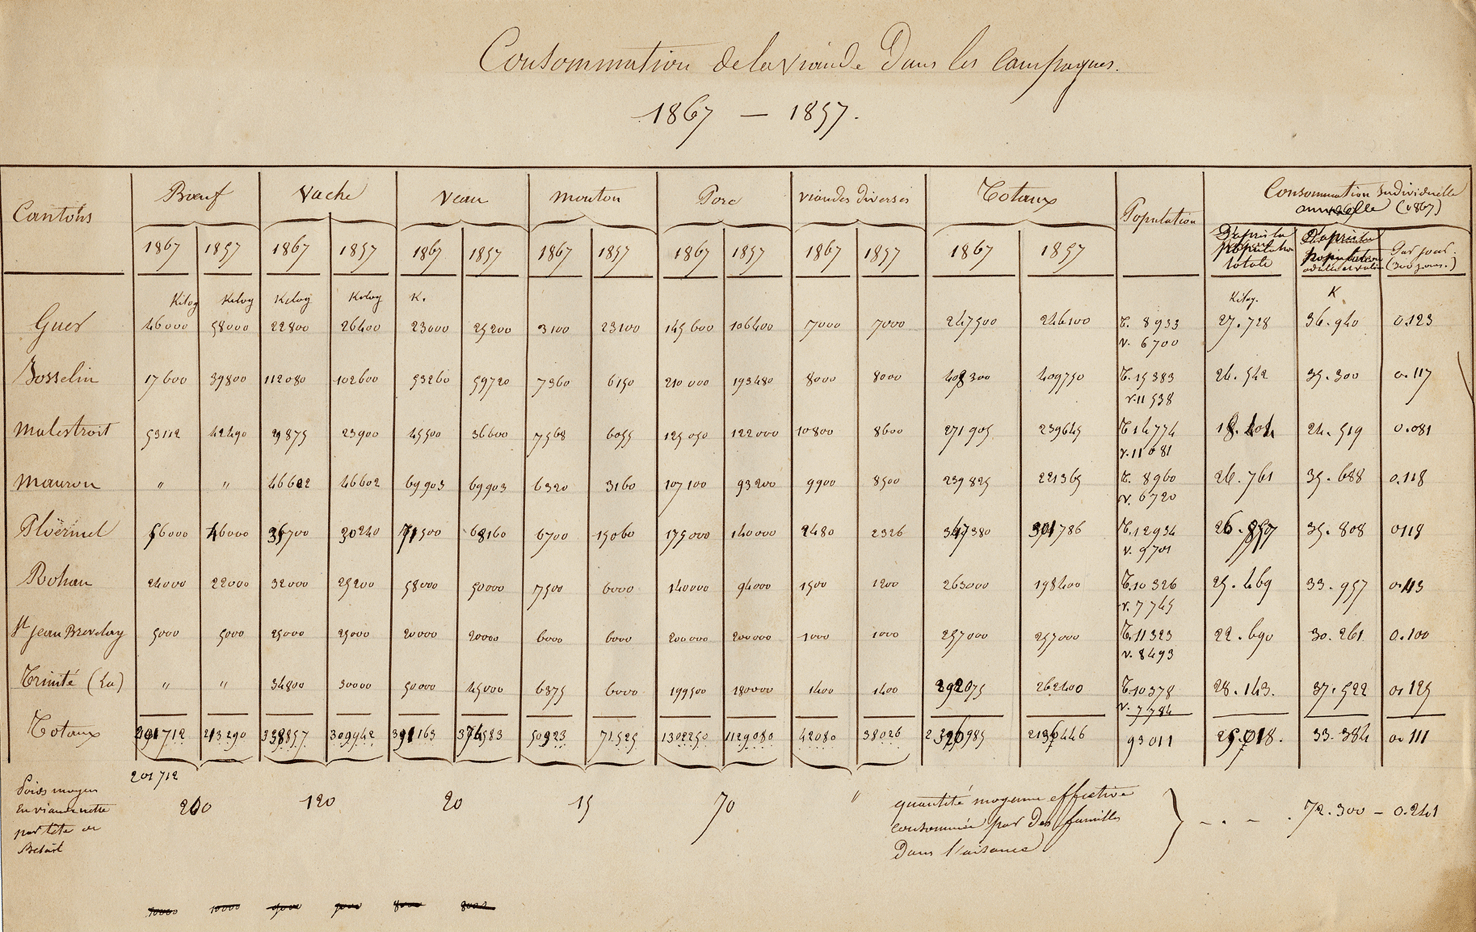 Consommation de la viande Dans les campagnes.
1867 — 1857.
Cantons Bœuf Vache Veau Mouton Porc viandes diverses Totaux Population Consommation Individuelle annuelle (1867)
1867 1857 1867 1857 1867 1857 1867 1857 1867 1857 1867 1857 1867 1857 D'après la population totale D'après la population Par jour (300 jours.)
Kilog Kilog Kilog Kilog K. Kilog. K
Guer 46000 58000 22800 26400 23000 25200 3100 23100 145600 106400 7000 7000 247500 246100 T. 8933 27.728 36.940 0.123
v. 6700
Josselin 17600 39800 112080 102600 53260 59720 7360 6150 210000 193480 8000 8000 408300 409750 T. 15383 26.542 35.300 0.117
v. 11538
Malestroit 53112 42490 29875 23900 45500 36600 7568 6055 125050 122000 10800 8600 271905 239645 T. 14774 18.404 24.519 0.081
v. 11081
Mauron " " 46602 46602 69903 69903 6320 3160 107100 93200 9900 8500 239825 221365 T. 8960 26.761 35.688 0.118
v. 6720
Ploërmel 56000 46000 35700 30240 71500 68160 6700 15060 175000 140000 2480 2326 347380 301786 T. 12934 26.857 35.808 0119
v. 9701
Rohan 24000 22000 32000 25200 58000 50000 7500 6000 140000 94000 1500 1200 263000 198400 T. 10326 25.469 33.957 0.113
v. 7745
St Jean Brevelay 5000 5000 25000 25000 20000 20000 6000 6000 200000 200000 1000 1000 257000 257000 T. 11323 22.690 30.261 0.100
v. 8493
Trinité (La) " " 34800 30000 50000 45000 6375 6000 199500 180000 1400 1400 292075 262400 T. 10378 28.143. 37.522 0.125
v. 7784
Totaux 201712 213290 338857 309942 391163 374583 50923 71525 1302250 1129080 42080 38026 2326985 2136446 93011 25.018. 33.384 0.111
201712
Poids moyen
en viande nette
par tête de
Bétail
200 120 20 15 70 "
quantité moyenne effective
consommée par des familles
Dans l'aisance
72.300 — 0.241
10000 10000 9000 9000 8000 8000